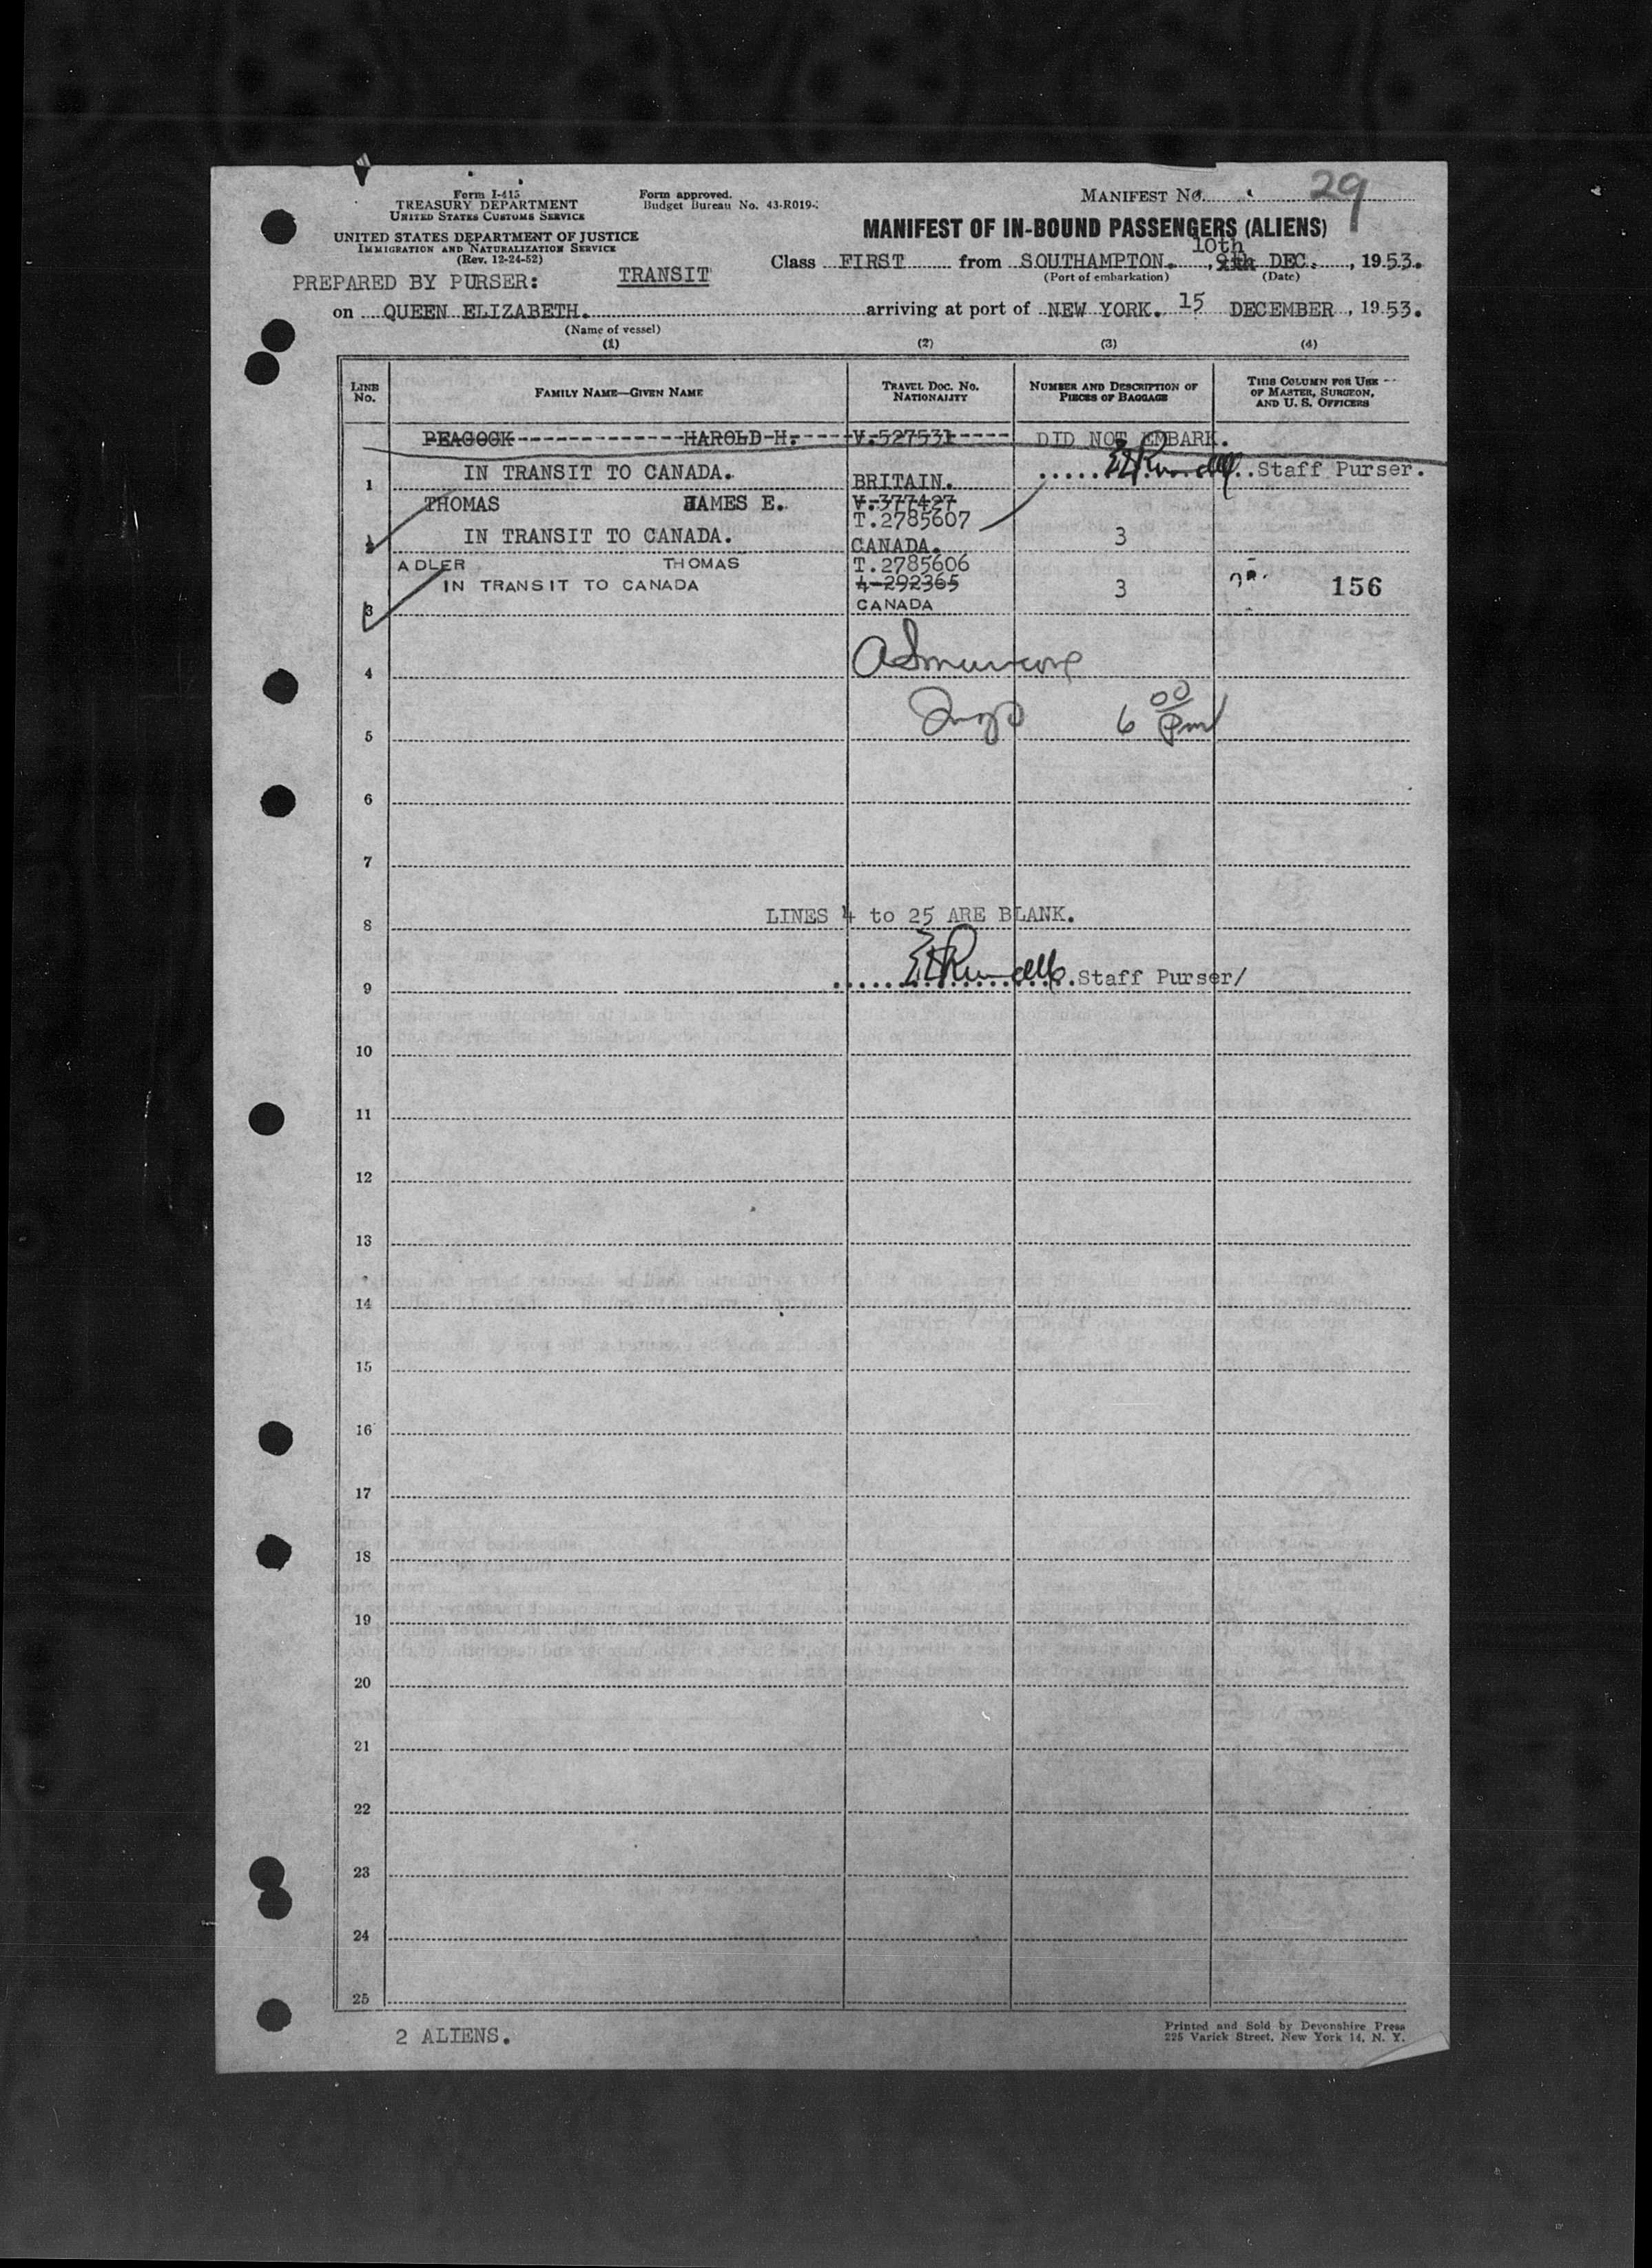 Form I-415
TREASURY DEPARTMENT
UNITED STATES CUSTOMS SERVICE
Form approved.
Budget Bureau No. 43-R019-
MANIFEST NO. 29
UNITED STATES DEPARTMENT OF JUSTICE
IMMIGRATION AND NATURALIZATION SERVICE
(Rev. 12-24-52)
MANIFEST OF IN-BOUND PASSENGERS (ALIENS)
10th
Class FIRST from SOUTHAMPTON. , 9th DEC. , 1953.
(Port of embarkation) (Date)
PREPARED BY PURSER: TRANSIT
on QUEEN ELIZABETH. arriving at port of NEW YORK. 15 DECEMBER , 1953.
(Name of vessel)
(1) (2) (3) (4)
LINE No.
FAMILY NAME—GIVEN NAME
TRAVEL DOC. NO. NATIONALITY
NUMBER AND DESCRIPTION OF PIECES OF BAGGAGE
THIS COLUMN FOR USE OF MASTER, SURGEON, AND U. S. OFFICERS
PEACOCK-------------HAROLD H.----V.527531---- DID NOT EMBARK.
1 IN TRANSIT TO CANADA. BRITAIN. Staff Purser.
THOMAS JAMES E. V.377427
T.2785607
2 IN TRANSIT TO CANADA. CANADA. 3
ADLER THOMAS T.2785606
IN TRANSIT TO CANADA 4-292365 3 156
3 CANADA
4
5 6 00 pm
6
7
LINES 4 to 25 ARE BLANK.
8
Staff Purser/
9
10
11
12
13
14
15
16
17
18
19
20
21
22
23
24
25
2 ALIENS.
Printed and Sold by Devonshire Press
225 Varick Street, New York 14, N. Y.